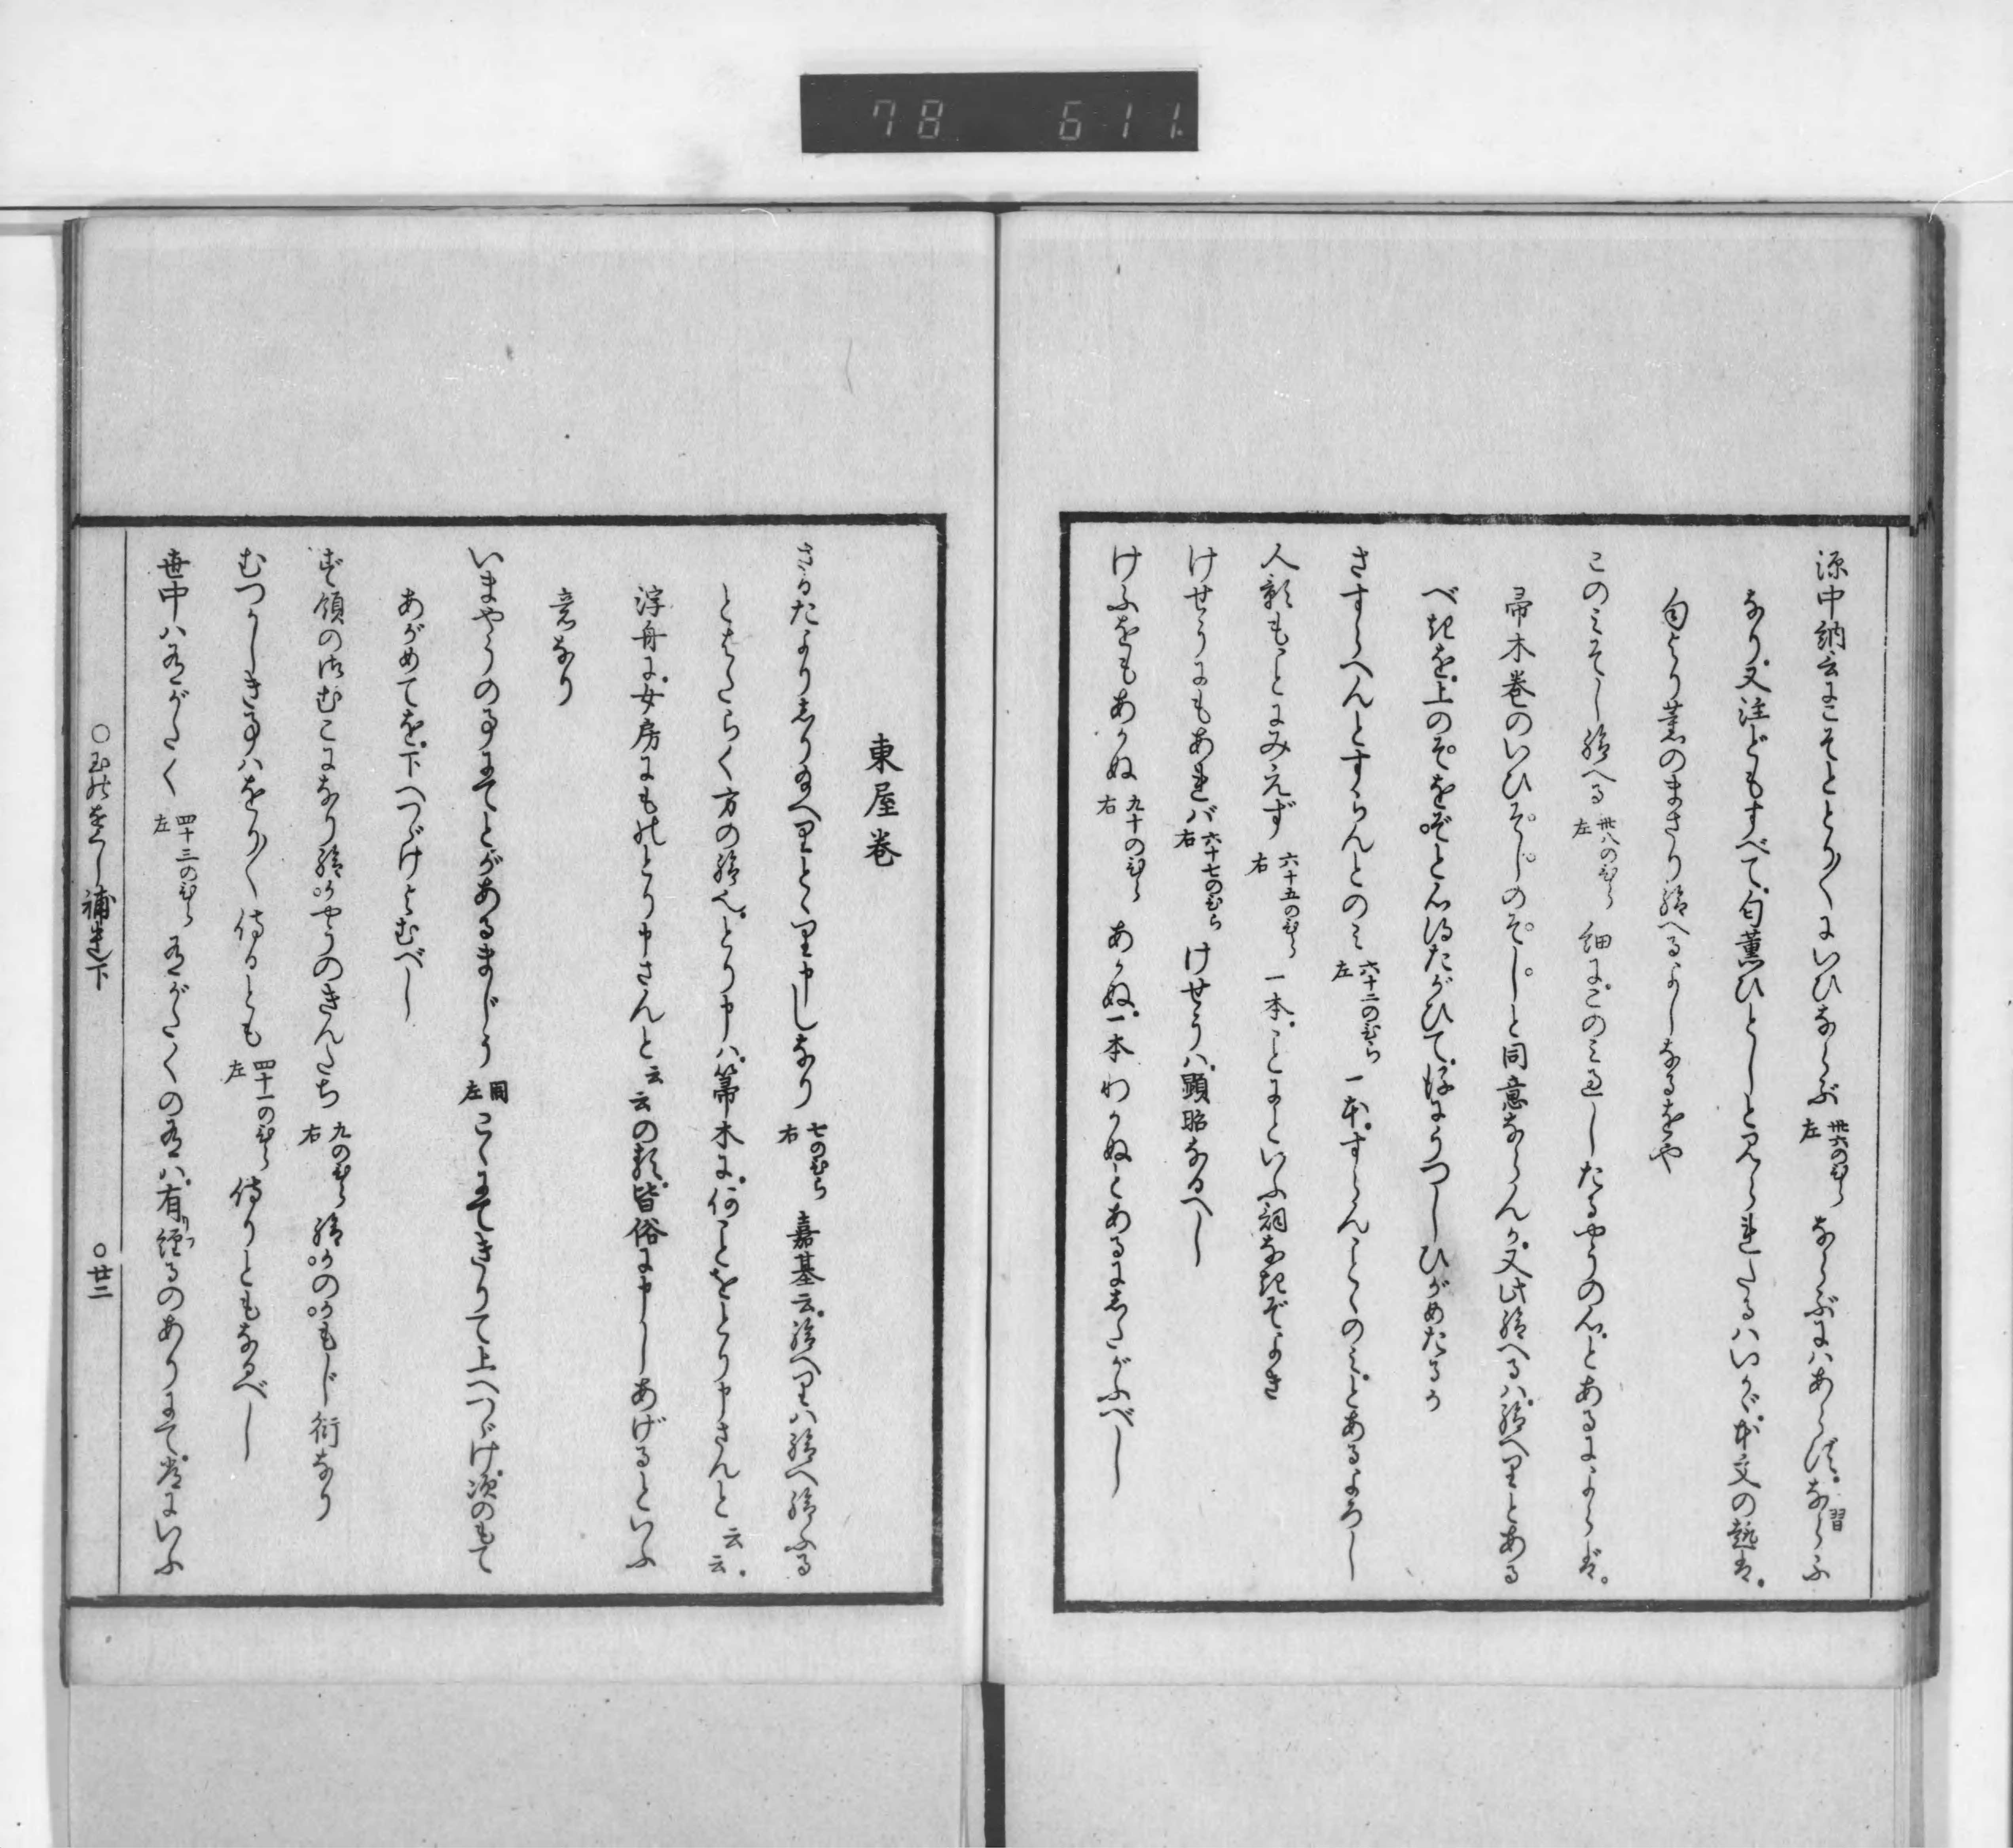 78 611.
源中納言にこそとり〴〵にいひならぶ 卅六のひら左 ならぶにハあらず。ならふ習
なり。又注どもすべて。匂薫ひとしと見られたるハいかゞ。本文の趣ハ。
匂より薫のまさり給へるよしなるをや
このミそし給へる 卅八のひら左 細に。このミ過したるやうの心。とあるによらバ。
帚木巻のいひそ゜じのそ゜じと同意ならんか。又此給へるハ。給へりとある
べきを。上のそ゜をぞと心得たがひて。後にうつしひがめたるか
さすらへんとすらんとのミ 六十二のひら左 一本。すらんことのミ。とあるよろし
人影もことにみえず 六十五のひら右 一本。ことにといふ詞なきぞよき
けせうにもあれバ 六十七のひら右 けせうハ。顕昭なるへし
けふをもあかぬ 九十のひら右 あかぬ。一本わかぬとあるにしたがふべし
東屋巻
さるたよりしり給へりとゝり申しなり 七のひら右 嘉基云。給へりハ給へ給ふる
とはたらく方の給へ。とり申しハ。箒木に。何ことをとり申さんと云云。
浮舟に。女房にものとり申さんと云云の類。皆俗に申しあげるといふ
意なり
いまやうの事にてとがあるまじう 同左 こゝにてきりて上へつゞけ。次のもて
あがめてを。下へつゞけよむべし
ず領の御むこになり給かやうのきんたち 九のひら右 給かのかもじ衍なり
むつかしき事ハをり〳〵侍るとも 四十一のひら左 侍りともなるべし
世中ハありがたく 四十三のひら左 ありがたくのありハ。有經るのありにて。常にいふ
○玉のをぐし補遺下 ○廿二